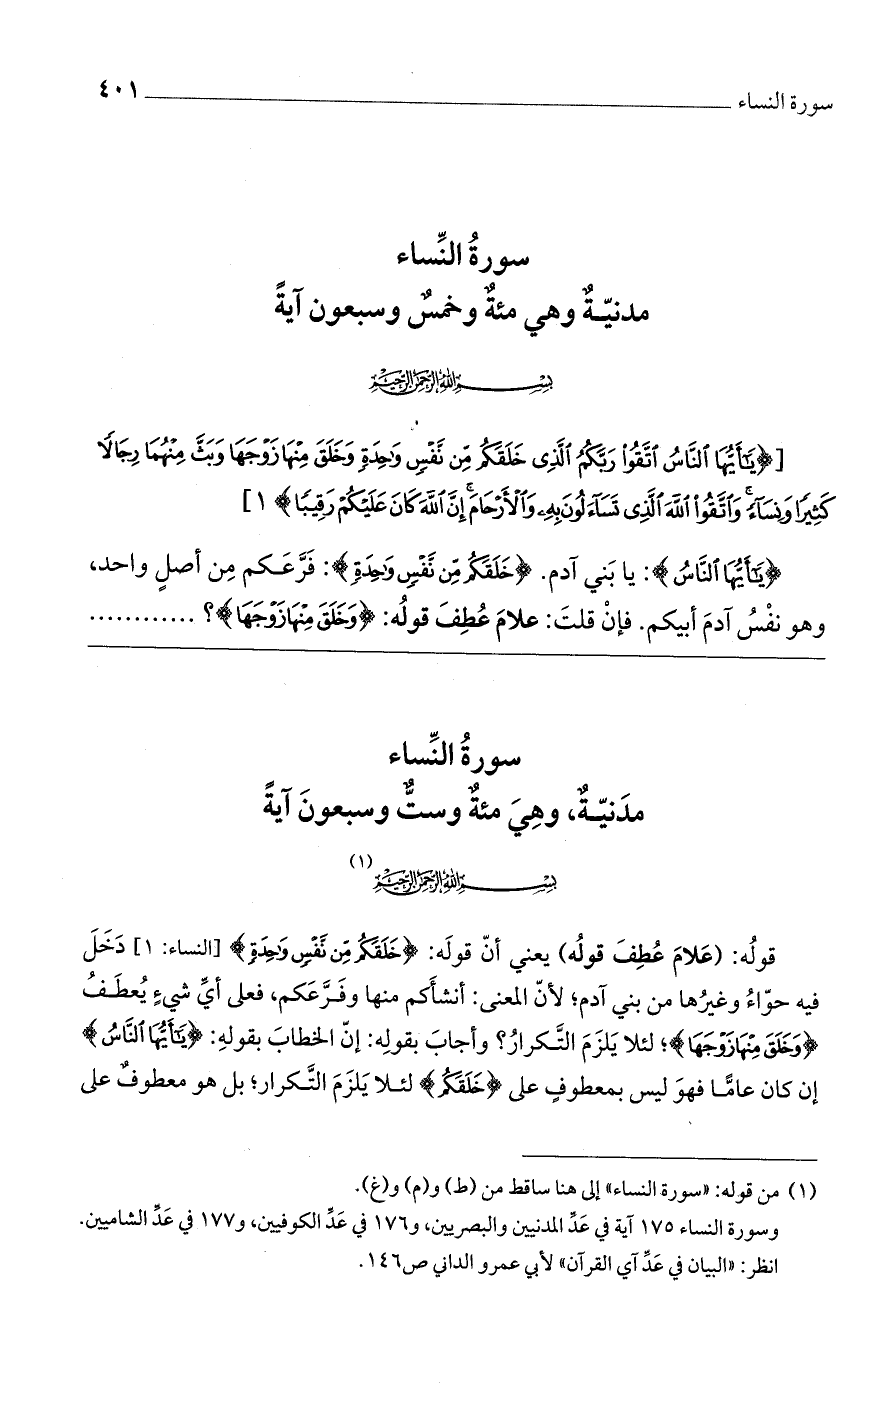 سورة النساء ٤٠١
سورةُ النِّساء
مدنيّةٌ وهي مئةٌ وخمسٌ وسبعون آيةً
بِسْمِ اللَّهِ الرَّحْمَٰنِ الرَّحِيمِ
[﴿يَٰٓأَيُّهَا ٱلنَّاسُ ٱتَّقُوا۟ رَبَّكُمُ ٱلَّذِى خَلَقَكُم مِّن نَّفْسٍ وَٰحِدَةٍ وَخَلَقَ مِنْهَا زَوْجَهَا وَبَثَّ مِنْهُمَا رِجَالًا
كَثِيرًا وَنِسَآءً ۚ وَٱتَّقُوا۟ ٱللَّهَ ٱلَّذِى تَسَآءَلُونَ بِهِۦ وَٱلْأَرْحَامَ ۚ إِنَّ ٱللَّهَ كَانَ عَلَيْكُمْ رَقِيبًا﴾ ١]
﴿يَٰٓأَيُّهَا ٱلنَّاسُ﴾: يا بَني آدم. ﴿خَلَقَكُم مِّن نَّفْسٍ وَٰحِدَةٍ﴾: فَرَّعَكم مِن أصلٍ واحد،
وهو نفْسُ آدمَ أبيكم. فإنْ قلتَ: علامَ عُطِفَ قولُه: ﴿وَخَلَقَ مِنْهَا زَوْجَهَا﴾؟ ............
سورةُ النِّساء
مدَنيّةٌ، وهِيَ مئةٌ وستٌّ وسبعونَ آيةً
بِسْمِ اللَّهِ الرَّحْمَٰنِ الرَّحِيمِ (١)
قولُه: (عَلامَ عُطِفَ قولُه) يعني أنّ قولَه: ﴿خَلَقَكُم مِّن نَّفْسٍ وَٰحِدَةٍ﴾ [النساء: ١] دَخَلَ
فيه حوّاءُ وغيرُها من بني آدم؛ لأنّ المعنى: أنشأكم منها وفَرَّعَكم، فعلى أيِّ شيءٍ يُعطَفُ
﴿وَخَلَقَ مِنْهَا زَوْجَهَا﴾؛ لئلا يَلزَمَ التَّكرارُ؟ وأجابَ بقولِه: إنّ الخطابَ بقولِهِ: ﴿يَٰٓأَيُّهَا ٱلنَّاسُ﴾
إن كان عامًّا فهوَ ليس بمعطوفٍ على ﴿خَلَقَكُم﴾ لئلا يَلزَمَ التَّكرار؛ بل هو معطوفٌ على
(١) من قوله: «سورة النساء» إلى هنا ساقط من (ط) و(م) و(غ).
وسورة النساء ١٧٥ آية في عَدِّ المدنيين والبصريين، و١٧٦ في عَدِّ الكوفيين، و١٧٧ في عَدِّ الشاميين.
انظر: «البيان في عَدِّ آي القرآن» لأبي عمرو الداني ص١٤٦.